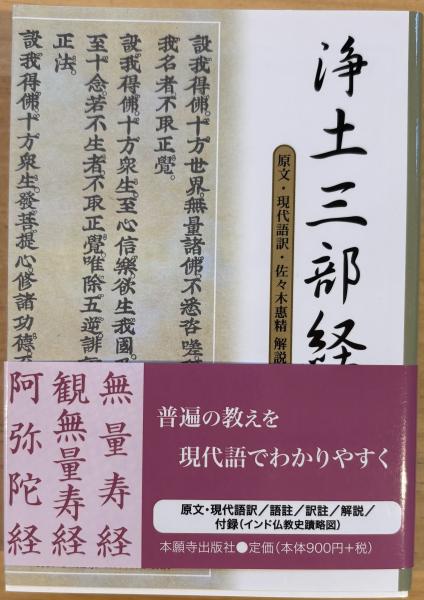 浄土三部経
原文・現代語訳・佐々木惠精 解説
設我得佛。十方世界。無量諸佛。不悉咨嗟
我名者。不取正覺。
設我得佛。十方衆生。至心信樂。欲生我國。
至十念。若不生者。不取正覺。唯除五逆。誹
正法。
設我得佛。十方衆生。發菩提心。修諸功德。
無量寿経
観無量寿経
阿弥陀経
普遍の教えを
現代語でわかりやすく
原文・現代語訳／語註／訳註／解説／
付録(インド仏教史蹟略図)
本願寺出版社●定価(本体900円+税)